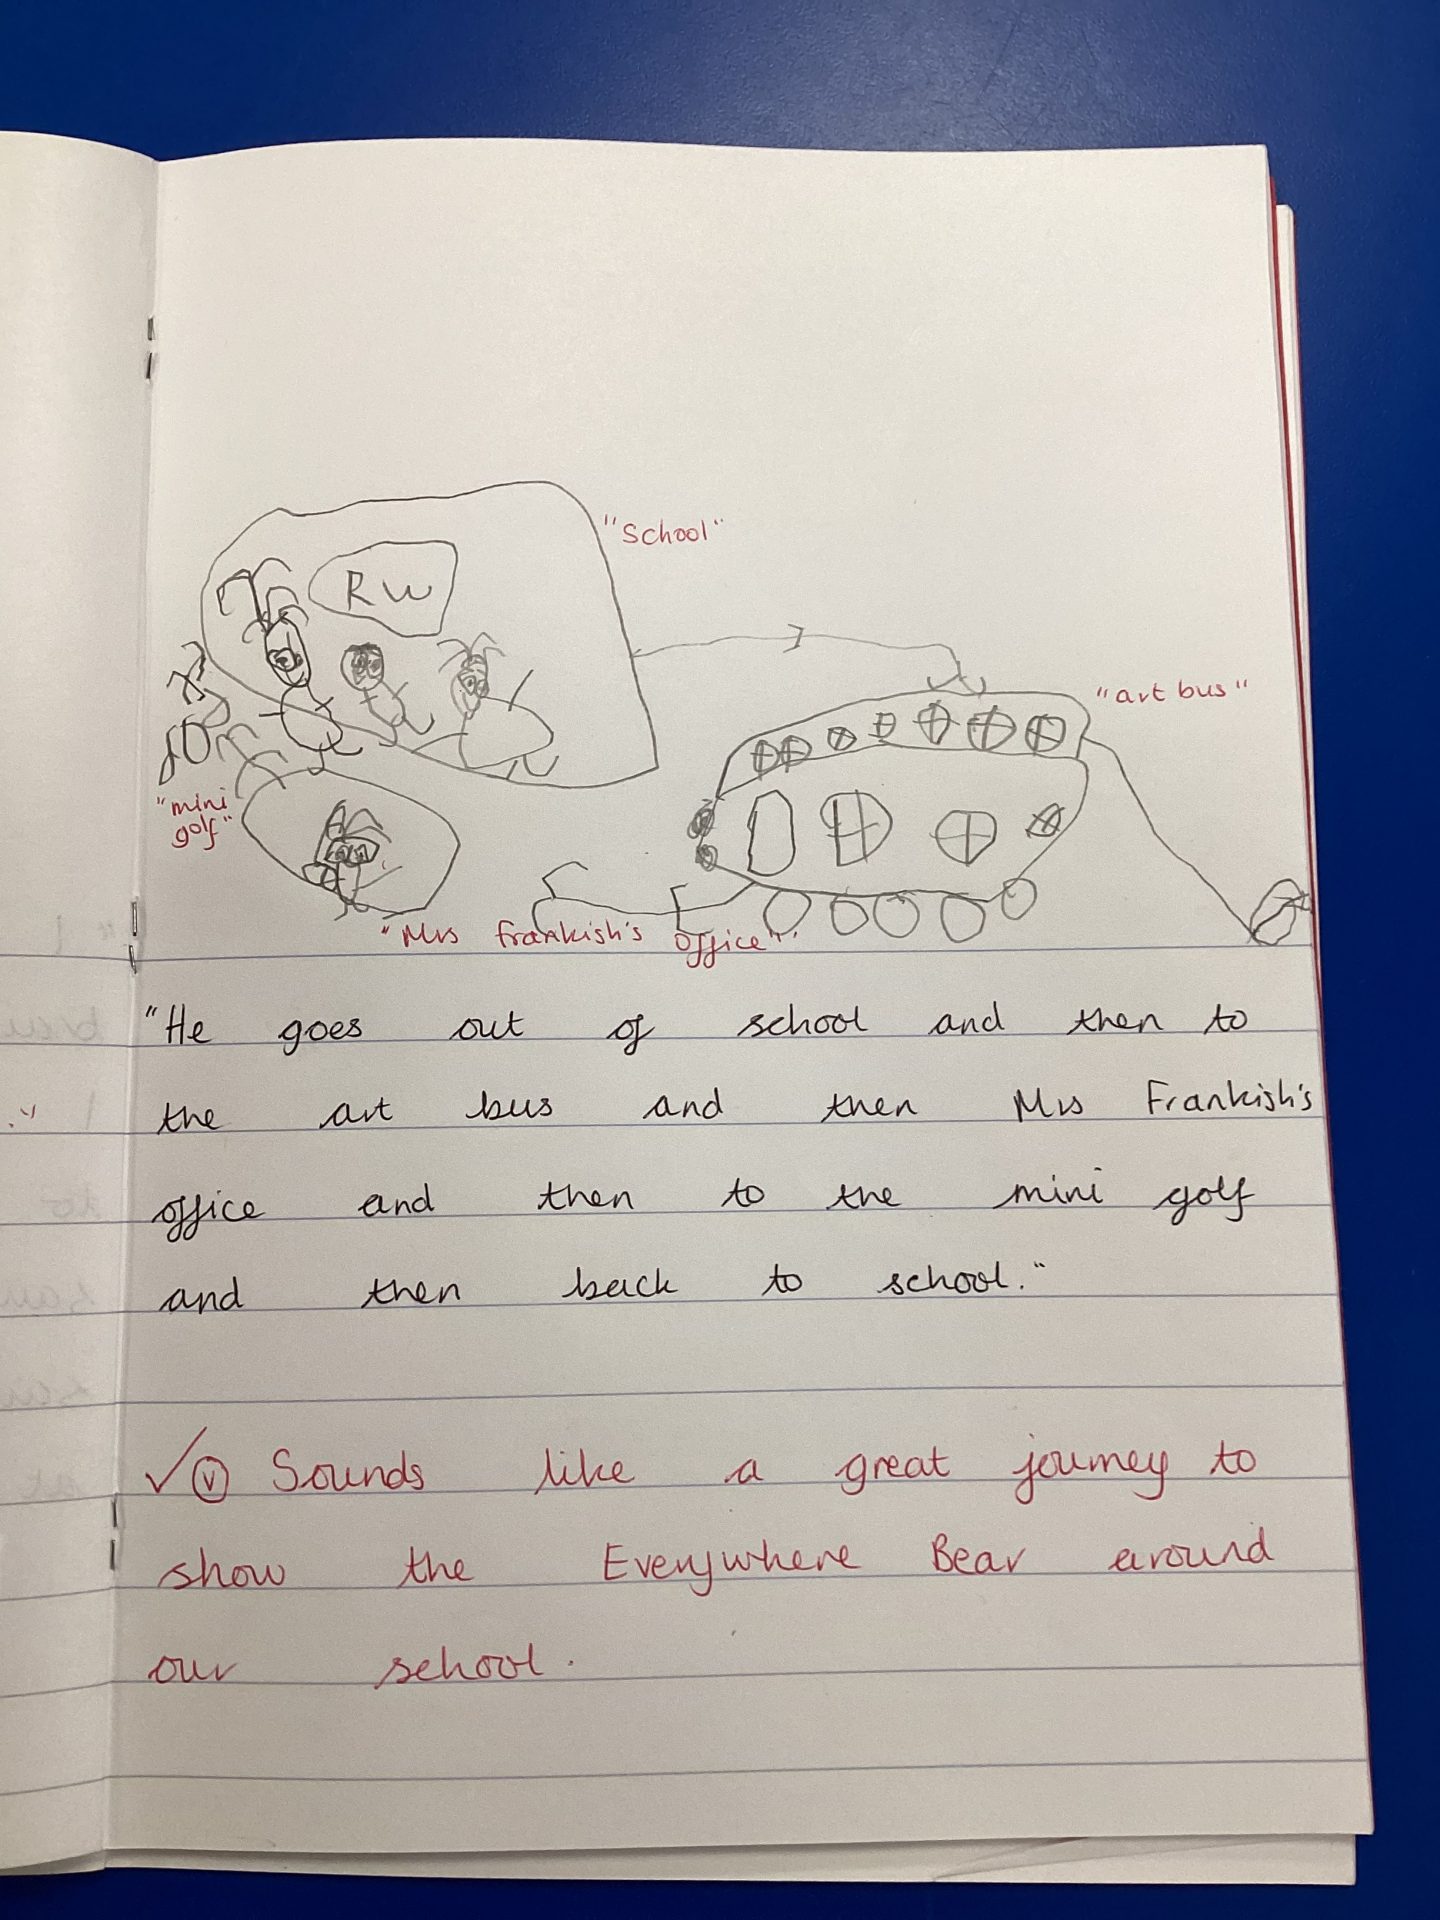 "School"
RW
"art bus"
"mini
golf"
"Mrs frankish's office".
"He goes out of school and then to
the art bus and then Mrs Frankish's
office and then to the mini golf
and then back to school."
✓ Ⓥ Sounds like a great journey to
show the Everywhere Bear around
our school.